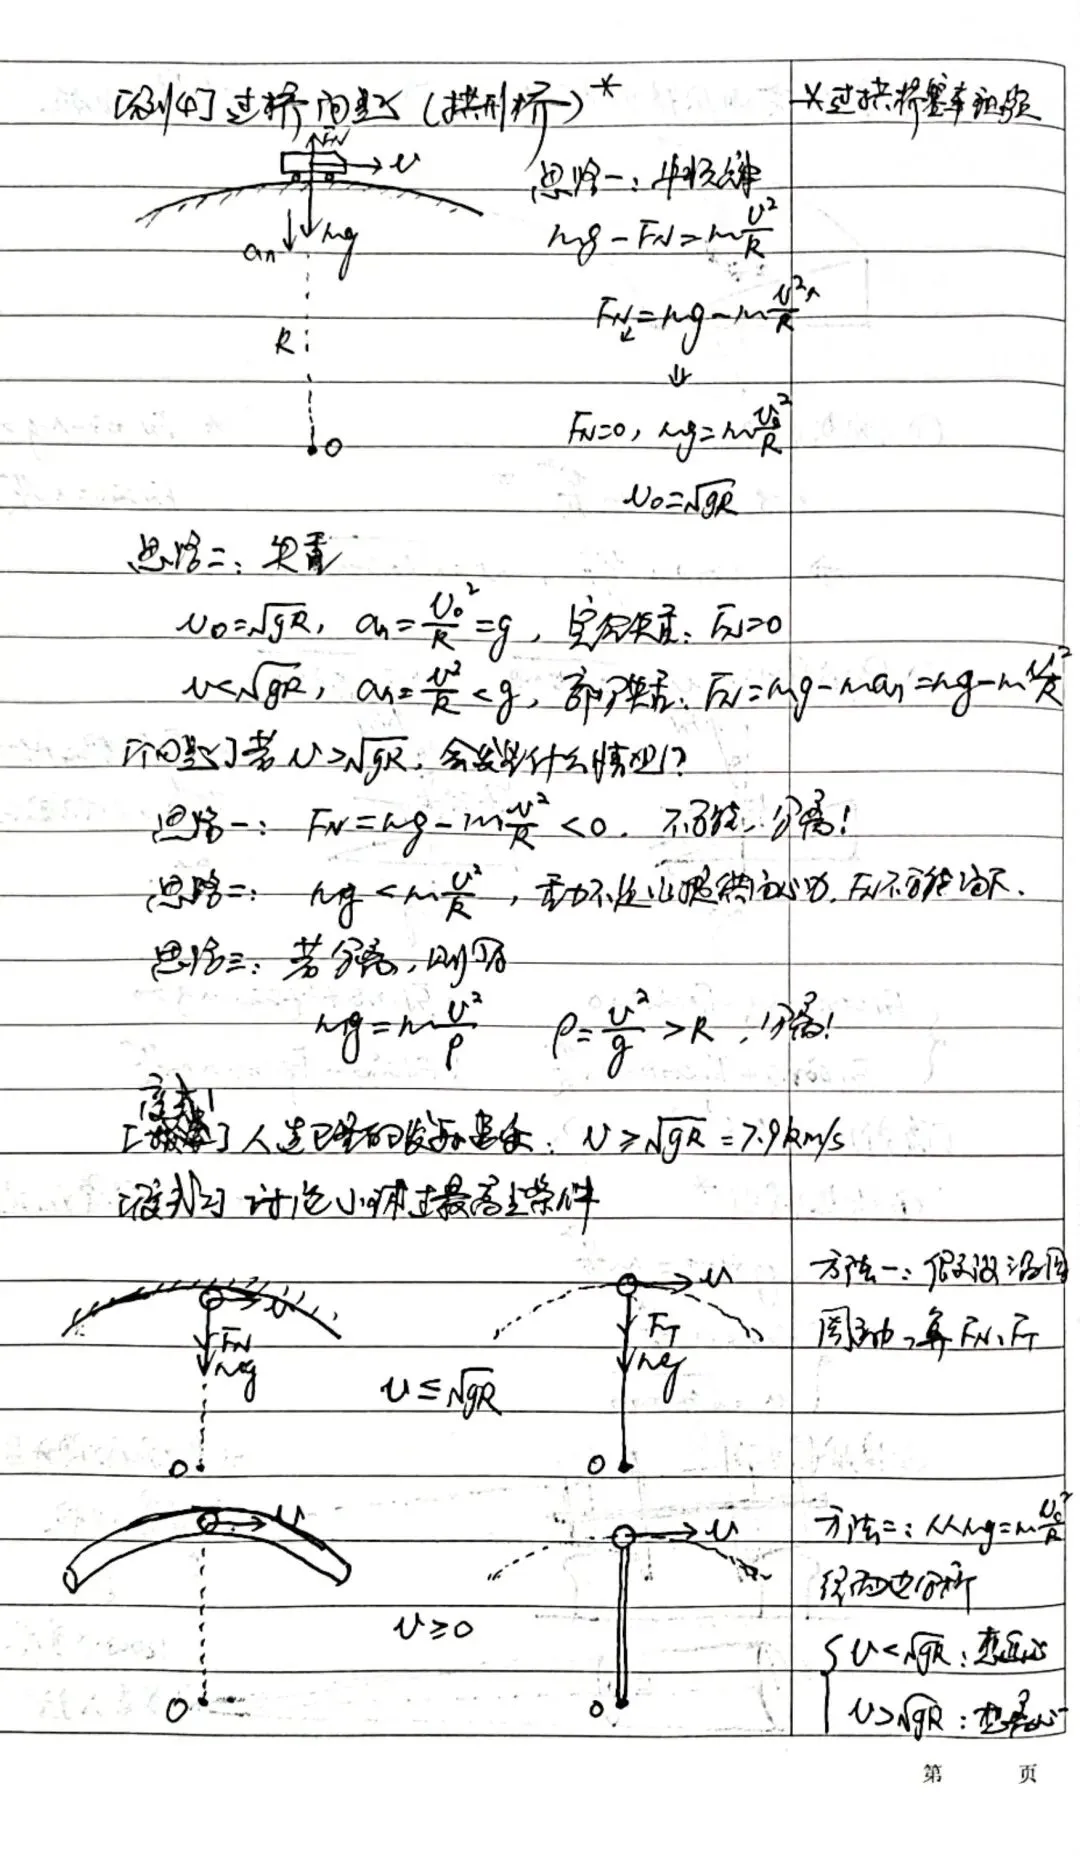 [例4] 过桥问题 (拱形桥)*
*过拱桥塞车词题
FN
v
an
mg
R
O
思路一: 牛顿定律
mg-FN=mv²/R
FN=mg-mv²/R
⇓
FN=0, mg=mv₀²/R
v₀=√gR
思路二: 失重
v₀=√gR, an=v₀²/R=g, 完全失重: FN=0
v<√gR, an=v²/R<g, 部分失重: FN=mg-man=mg-mv²/R
[问题] 若v>√gR, 会发生什么情况?
思路一: FN=mg-mv²/R<0. 不可能, 分离!
思路二: mg<mv²/R, 重力不足以提供向心力, FN不可能向下.
思路三: 若分离, 则
mg=mv²/ρ ρ=v²/g>R, 分离!
人造卫星的发射: v≥√gR=7.9km/s
讨论小球过最高点条件
v
FN
mg
O
v≤√gR
v
FT
mg
O
方法一: 假设沿圆
周运动, 算FN、FT
v
O
v≥0
v
O
方法二: 从mg=mv₀²/R
往两边分析
{v<√gR: 近心
v>√gR: 离心
第 页